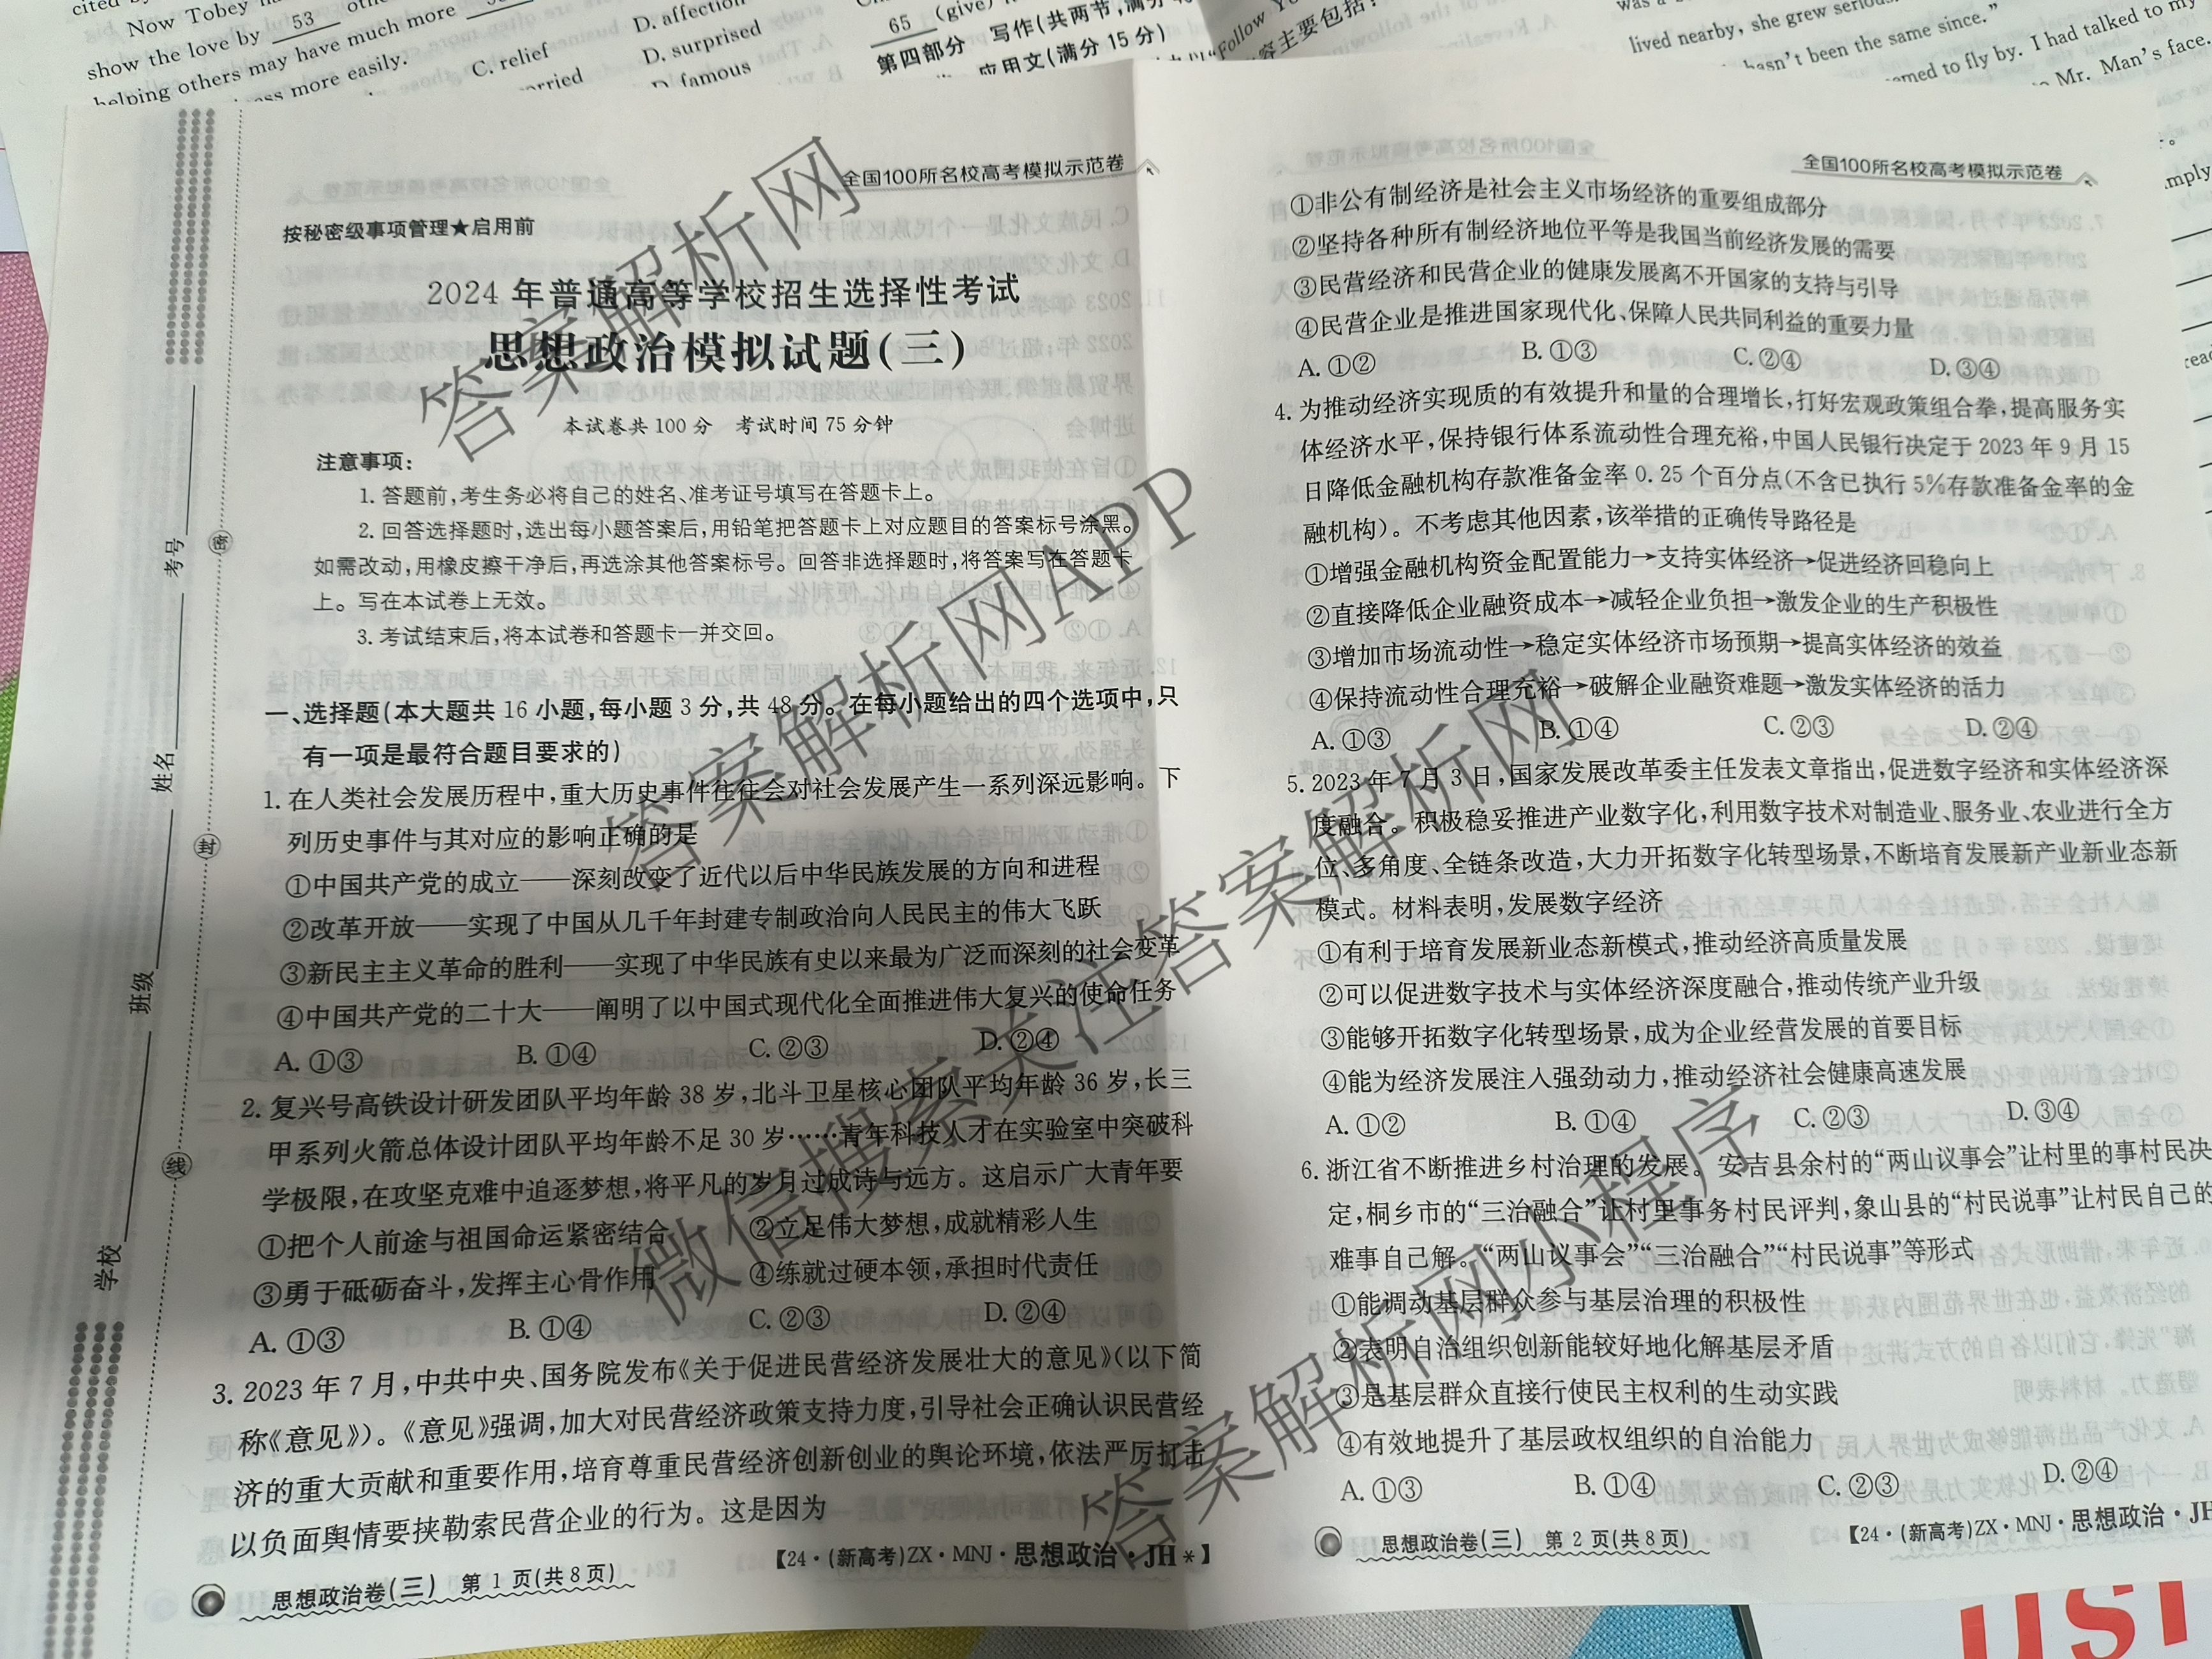 Now Tobey
show the love by 53
helping others may have much more
more easily.
C. relief
D. affection
D. surprised
D. famous
65 (give)
第四部分 写作(共两节,满分
应用文(满分 15 分)
"Follow
容主要包括:
lived nearby, she grew
hasn't been the same since."
seemed to fly by. I had talked to my
Mr. Man's face.
全国100所名校高考模拟示范卷
按秘密级事项管理★启用前
2024 年普通高等学校招生选择性考试
思想政治模拟试题(三)
本试卷共 100 分 考试时间 75 分钟
注意事项:
1. 答题前,考生务必将自己的姓名、准考证号填写在答题卡上。
2. 回答选择题时,选出每小题答案后,用铅笔把答题卡上对应题目的答案标号涂黑。
如需改动,用橡皮擦干净后,再选涂其他答案标号。回答非选择题时,将答案写在答题卡
上。写在本试卷上无效。
3. 考试结束后,将本试卷和答题卡一并交回。
一、选择题(本大题共 16 小题,每小题 3 分,共 48 分。在每小题给出的四个选项中,只
有一项是最符合题目要求的)
1. 在人类社会发展历程中,重大历史事件往往会对社会发展产生一系列深远影响。下
列历史事件与其对应的影响正确的是
①中国共产党的成立——深刻改变了近代以后中华民族发展的方向和进程
②改革开放——实现了中国从几千年封建专制政治向人民民主的伟大飞跃
③新民主主义革命的胜利——实现了中华民族有史以来最为广泛而深刻的社会变革
④中国共产党的二十大——阐明了以中国式现代化全面推进伟大复兴的使命任务
A. ①③ B. ①④ C. ②③ D. ②④
2. 复兴号高铁设计研发团队平均年龄 38 岁,北斗卫星核心团队平均年龄 36 岁,长三
甲系列火箭总体设计团队平均年龄不足 30 岁……青年科技人才在实验室中突破科
学极限,在攻坚克难中追逐梦想,将平凡的岁月过成诗与远方。这启示广大青年要
①把个人前途与祖国命运紧密结合 ②立足伟大梦想,成就精彩人生
③勇于砥砺奋斗,发挥主心骨作用 ④练就过硬本领,承担时代责任
A. ①③ B. ①④ C. ②③ D. ②④
3. 2023 年 7 月,中共中央、国务院发布《关于促进民营经济发展壮大的意见》(以下简
称《意见》)。《意见》强调,加大对民营经济政策支持力度,引导社会正确认识民营经
济的重大贡献和重要作用,培育尊重民营经济创新创业的舆论环境,依法严厉打击
以负面舆情要挟勒索民营企业的行为。这是因为
思想政治卷(三) 第 1 页(共 8 页)
【24·(新高考)ZX·MNJ·思想政治·JH*】
考号
姓名
班级
学校
密
封
线
全国100所名校高考模拟示范卷
①非公有制经济是社会主义市场经济的重要组成部分
②坚持各种所有制经济地位平等是我国当前经济发展的需要
③民营经济和民营企业的健康发展离不开国家的支持与引导
④民营企业是推进国家现代化、保障人民共同利益的重要力量
A. ①② B. ①③ C. ②④ D. ③④
4. 为推动经济实现质的有效提升和量的合理增长,打好宏观政策组合拳,提高服务实
体经济水平,保持银行体系流动性合理充裕,中国人民银行决定于 2023 年 9 月 15
日降低金融机构存款准备金率 0.25 个百分点(不含已执行 5%存款准备金率的金
融机构)。不考虑其他因素,该举措的正确传导路径是
①增强金融机构资金配置能力→支持实体经济→促进经济回稳向上
②直接降低企业融资成本→减轻企业负担→激发企业的生产积极性
③增加市场流动性→稳定实体经济市场预期→提高实体经济的效益
④保持流动性合理充裕→破解企业融资难题→激发实体经济的活力
A. ①③ B. ①④ C. ②③ D. ②④
5. 2023 年 7 月 3 日,国家发展改革委主任发表文章指出,促进数字经济和实体经济深
度融合。积极稳妥推进产业数字化,利用数字技术对制造业、服务业、农业进行全方
位、多角度、全链条改造,大力开拓数字化转型场景,不断培育发展新产业新业态新
模式。材料表明,发展数字经济
①有利于培育发展新业态新模式,推动经济高质量发展
②可以促进数字技术与实体经济深度融合,推动传统产业升级
③能够开拓数字化转型场景,成为企业经营发展的首要目标
④能为经济发展注入强劲动力,推动经济社会健康高速发展
A. ①② B. ①④ C. ②③ D. ③④
6. 浙江省不断推进乡村治理的发展。安吉县余村的“两山议事会”让村里的事村民决
定,桐乡市的“三治融合”让村里事务村民评判,象山县的“村民说事”让村民自己的
难事自己解。“两山议事会”“三治融合”“村民说事”等形式
①能调动基层群众参与基层治理的积极性
②表明自治组织创新能较好地化解基层矛盾
③是基层群众直接行使民主权利的生动实践
④有效地提升了基层政权组织的自治能力
A. ①③ B. ①④ C. ②③ D. ②④
思想政治卷(三) 第 2 页(共 8 页)
【24·(新高考)ZX·MNJ·思想政治·JH
答案解析网
答案解析网APP
微信搜索关注答案解析网
答案解析网小程序